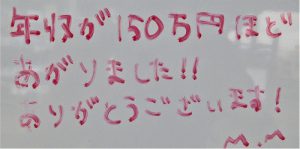 年収が150万円ほど
あがりました!!
ありがとうございます!
M.M